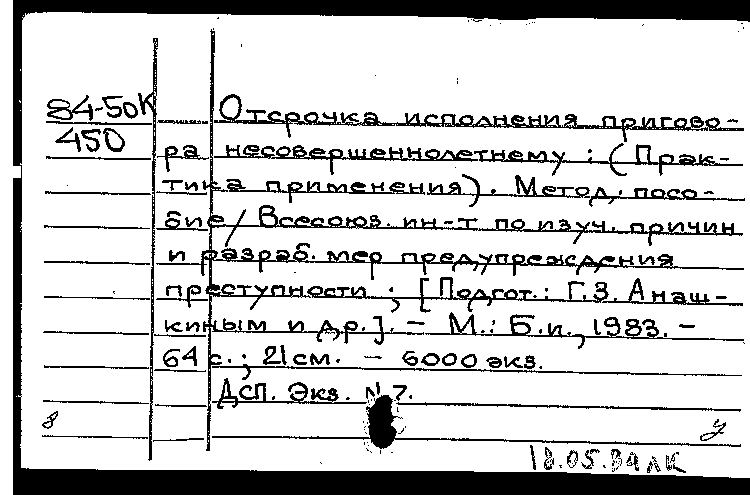 84-50К
450
Отсрочка исполнения пригово-
ра несовершеннолетнему : (Прак-
тика применения). Метод. посо-
бие / Всесоюз. ин-т по изуч. причин
и разраб. мер предупреждения
преступности ; [Подгот.: Г.З. Анаш-
киным и др.]. – М.: Б.и., 1983. –
64 с.; 21 см. – 6000 экз.
ДСП. Экз. N 7.
8 у
18.05.84 лк